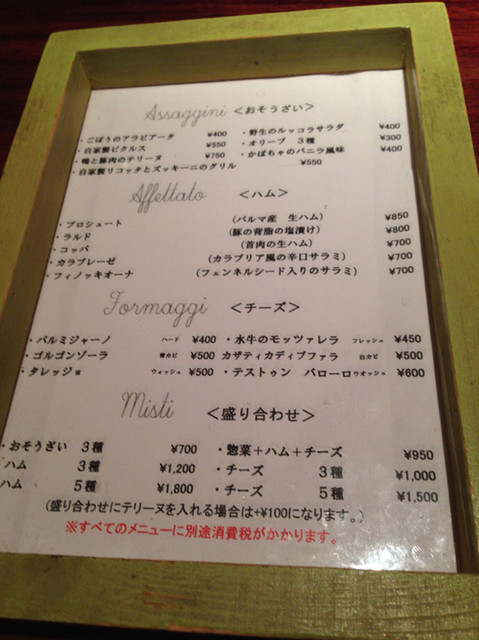 Assaggini <おそうざい>
・ごぼうのアラビアータ ¥400 ・野生のルッコラサラダ ¥400
・自家製ピクルス ¥550 ・オリーブ 3種 ¥300
・鴨と豚肉のテリーヌ ¥750 ・かぼちゃのバニラ風味 ¥400
・自家製リコッタとズッキーニのグリル ¥550
Affettato <ハム>
・プロシュート (パルマ産 生ハム) ¥850
・ラルド (豚の背脂の塩漬け) ¥800
・コッパ (首肉の生ハム) ¥700
・カラブレーゼ (カラブリア風の辛口サラミ) ¥700
・フィノッキオーナ (フェンネルシード入りのサラミ) ¥700
Formaggi <チーズ>
・パルミジャーノ ハード ¥400 ・水牛のモッツァレラ フレッシュ ¥450
・ゴルゴンゾーラ 青カビ ¥500 カザティカディブファラ 白カビ ¥500
・タレッジョ ウォッシュ ¥500 ・テストゥン バローロ ウオッシュ ¥600
Misti <盛り合わせ>
・おそうざい 3種 ¥700 ・惣菜+ハム+チーズ ¥950
ハム 3種 ¥1,200 ・チーズ 3種 ¥1,000
ハム 5種 ¥1,800 ・チーズ 5種 ¥1,500
(盛り合わせにテリーヌを入れる場合は+¥100になります。)
※すべてのメニューに別途消費税がかかります。